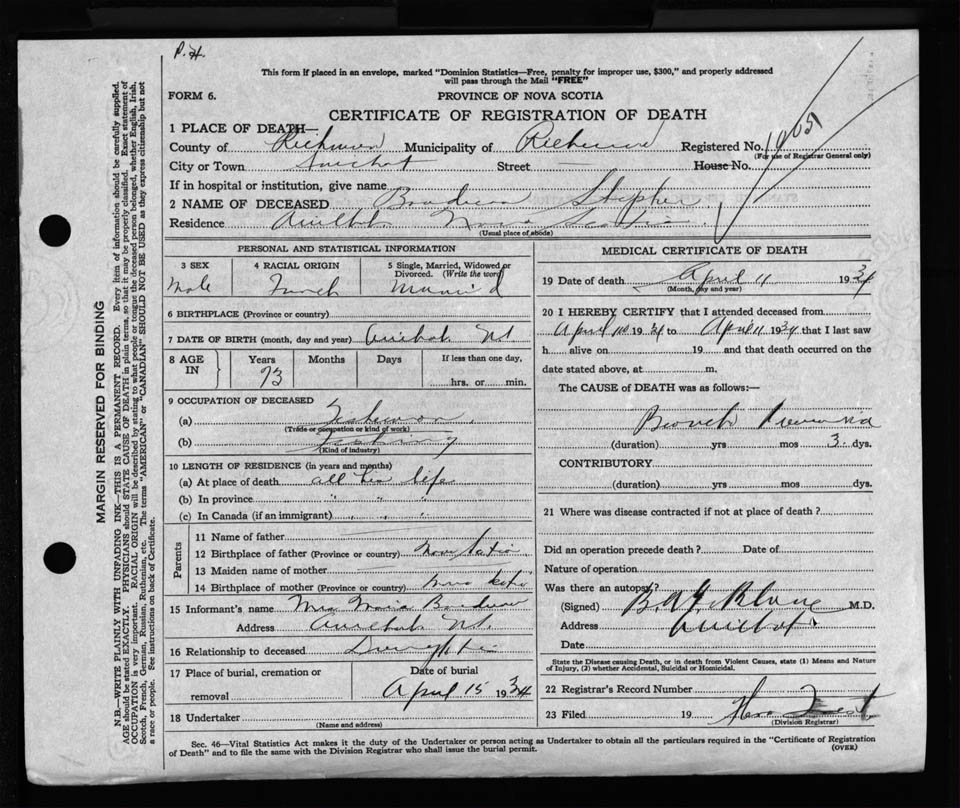 P. H.
This form if placed in an envelope, marked "Dominion Statistics—Free, penalty for improper use, $300," and properly addressed
will pass through the Mail "FREE"
FORM 6. PROVINCE OF NOVA SCOTIA
CERTIFICATE OF REGISTRATION OF DEATH
1 PLACE OF DEATH—
County of Richmond Municipality of Richmond Registered No.
(For use of Registrar General only)
City or Town Arichat Street House No.
If in hospital or institution, give name
2 NAME OF DECEASED Boudreau Stephen
Residence Arichat Nova Scotia
(Usual place of abode)
PERSONAL AND STATISTICAL INFORMATION
3 SEX 4 RACIAL ORIGIN 5 Single, Married, Widowed or
Divorced. (Write the word)
Male French Married
6 BIRTHPLACE (Province or country)
7 DATE OF BIRTH (month, day and year) Arichat
8 AGE IN Years Months Days If less than one day,
73 hrs. or min.
9 OCCUPATION OF DECEASED
(a) Fisherman
(Trade or occupation or kind of work)
(b) Fishing
(Kind of industry)
10 LENGTH OF RESIDENCE (in years and months)
(a) At place of death all his life
(b) In province " "
(c) In Canada (if an immigrant) " "
Parents
11 Name of father
12 Birthplace of father (Province or country) Nova Scotia
13 Maiden name of mother
14 Birthplace of mother (Province or country) Nova Scotia
15 Informant's name Mrs Boudreau
Address Arichat
16 Relationship to deceased
17 Place of burial, cremation or Date of burial
removal April 15 1934
18 Undertaker
(Name and address)
MEDICAL CERTIFICATE OF DEATH
19 Date of death April 11 1934
(Month, day and year)
20 I HEREBY CERTIFY that I attended deceased from
April 1934 to April 11 1934 that I last saw
h alive on 19 and that death occurred on the
date stated above, at m.
The CAUSE of DEATH was as follows:—
Broncho Pneumonia
(duration) yrs mos 3 dys.
CONTRIBUTORY
(duration) yrs mos dys.
21 Where was disease contracted if not at place of death?
Did an operation precede death? Date of
Nature of operation
Was there an autopsy?
(Signed) M.D.
Address Arichat
Date
State the Disease causing Death, or in death from Violent Causes, state (1) Means and Nature
of Injury, (2) whether Accidental, Suicidal or Homicidal.
22 Registrar's Record Number
23 Filed 19
(Division Registrar)
Sec. 46—Vital Statistics Act makes it the duty of the Undertaker or person acting as Undertaker to obtain all the particulars required in the "Certificate of Registration
of Death" and to file the same with the Division Registrar who shall issue the burial permit. (OVER)
MARGIN RESERVED FOR BINDING
N.B.—WRITE PLAINLY WITH UNFADING INK—THIS IS A PERMANENT RECORD. Every item of information should be carefully supplied.
AGE should be stated EXACTLY. PHYSICIANS should STATE CAUSE OF DEATH in plain terms, so that it may be properly classified. Exact statement of
OCCUPATION is very important. RACIAL ORIGIN will be described by stating to what people or tongue the deceased person belonged, whether English, Irish,
Scotch, French, German, Russian, Ruthenian, etc. The terms "AMERICAN" or "CANADIAN" SHOULD NOT BE USED as they express citizenship but not
a race or people. See instructions on back of Certificate.